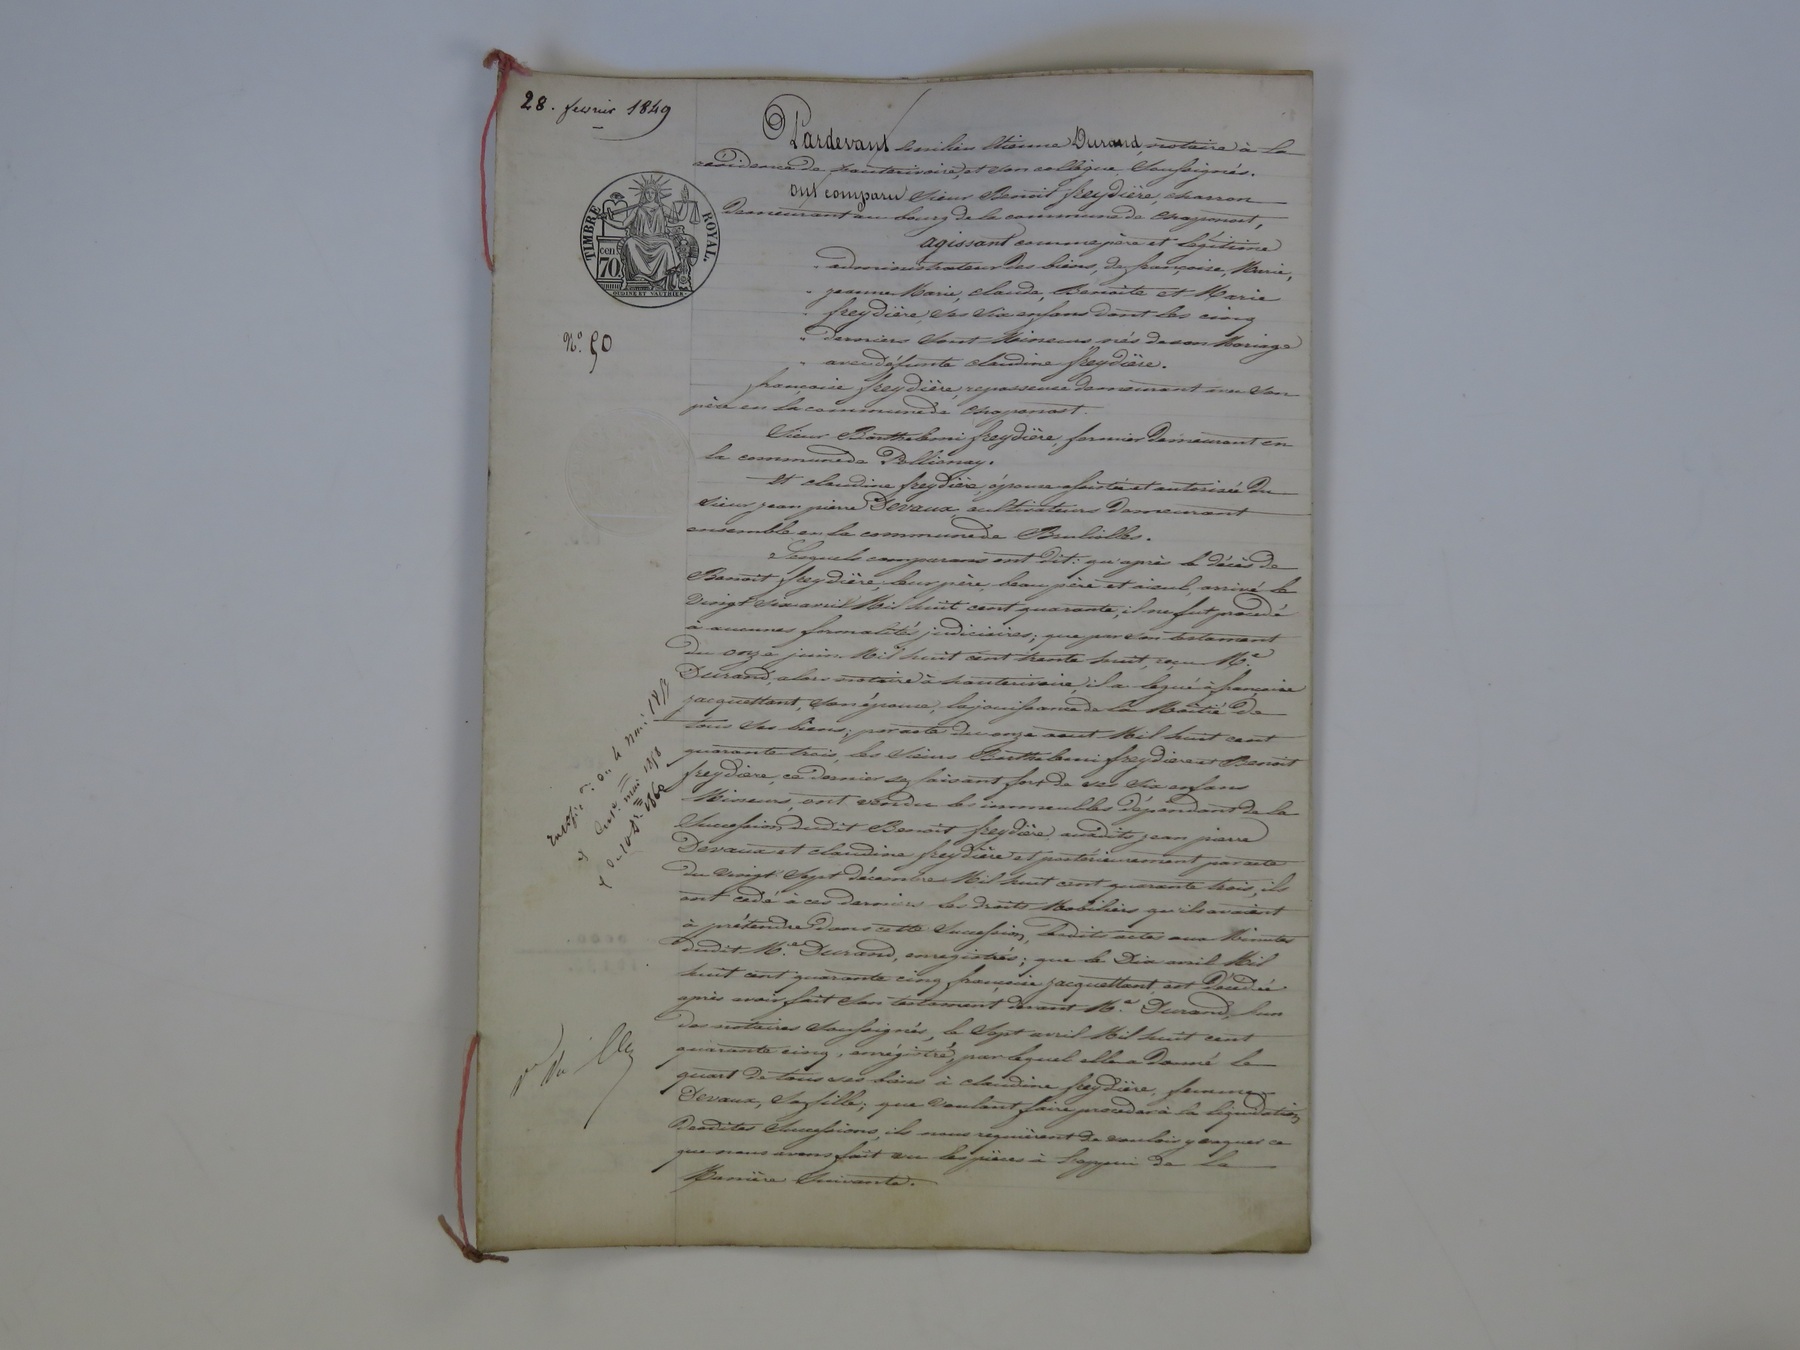 28. fevrier 1849
TIMBRE ROYAL.
cen
70.
OUDINÉ ET VAUTHIER
N.o 50
Pardevant Etienne Durand, notaire à la
résidence de hauterivoire, et son collègue Soussignés.
Ont comparu Sieur Benoit freydière, charron
Demeurant au bourg de la commune de chaponost,
agissant comme père et légitime
administrateur des biens, de françoise, Marie,
jeanne Marie, claude, Benoite et Marie
freydière, ses six enfans dont les cinq
derniers sont Mineurs, nés de son Mariage
avec défunte claudine freydière.
françoise freydière, repasseuse demeurant avec son
père en la commune de chaponost.
Sieur Barthelemi freydière, fermier Demeurant en
la commune de Pollionay.
Et claudine freydière, épouse assistée et autorisée du
sieur jean pierre Devaux, cultivateurs demeurant
ensemble en la commune de Brulioles.
Lesquels comparans ont dit: qu'après le décès de
Benoit freydière, leur père, beau père et aieul, arrivé le
vingt six avril Mil huit cent quarante, il ne fut procédé
à aucunes formalités judiciaires; que par son testament
du onze juin Mil huit cent trente huit, reçu M.e
Durand, alors notaire à hauterivoire, il a legué à françoise
jacquettant, son épouse, la jouissance de la Moitié de
tous ses biens; par acte du onze aout Mil huit cent
quarante trois, les Sieurs Barthelemi freydiere et Benoit
freydiere, ce dernier se faisant fort de ses six enfans
Mineurs, ont vendu les immeubles dépendant de la
Succession dudit Benoit freydière, auxdits jean pierre
Devaux et claudine freydière et postérieurement par acte
du vingt Sept décembre Mil huit cent quarante trois, ils
ont cédé à ces derniers les droits Mobiliers qu'ils avaient
à prétendre dans cette Succession, lesdits actes aux Minutes
dudit M.e Durand, enregistrés; que le Dix avril Mil
huit cent quarante cinq françoise jacquettant est décédée
après avoir fait son testament devant M.e Durand, l'un
des notaires Soussignés, le Sept avril Mil huit cent
quarante cinq, enrégistré, par lequel elle a donné le
quart de tous ses biens à claudine freydière, femme
Devaux, sa fille; que voulant faire proceder à la liquidation
Desdites Successions, ils nous requièrent de vouloir y vaquer ce
que nous avons fait vu les pièces à l'appui de la
Manière Suivante.